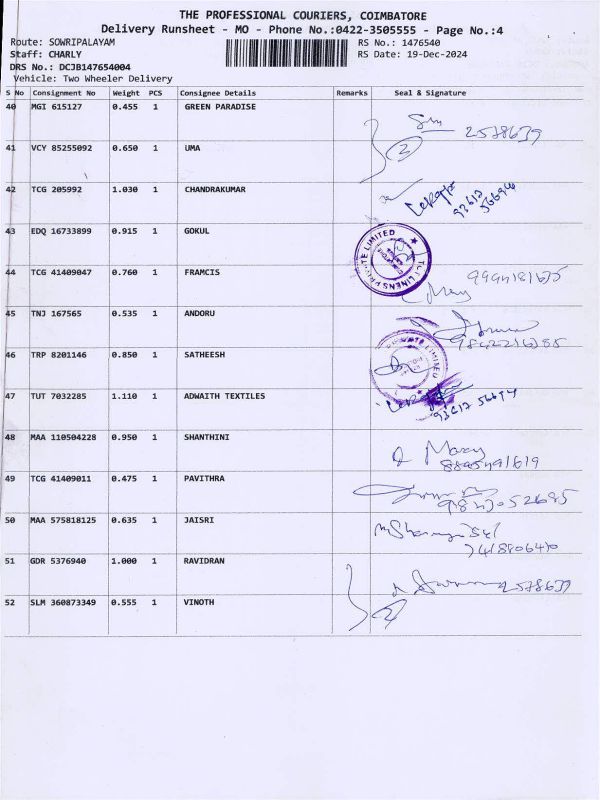 THE PROFESSIONAL COURIERS, COIMBATORE
Delivery Runsheet - MO - Phone No.:0422-3505555 - Page No.:4
Route: SOWRIPALAYAM
RS No.: 1476540
Staff: CHARLY
RS Date: 19-Dec-2024
DRS No.: DCJB147654004
Vehicle: Two Wheeler Delivery
S No Consignment No Weight PCS Consignee Details Remarks Seal & Signature
40 MGI 615127 0.455 1 GREEN PARADISE
2578639
2
41 VCY 85255092 0.650 1 UMA
42 TCG 205992 1.030 1 CHANDRAKUMAR
93617
56694
43 EDQ 16733899 0.915 1 GOKUL
TCT LINENS PRIVATE LIMITED
44 TCG 41409047 0.760 1 FRAMCIS
Mary
45 TNJ 167565 0.535 1 ANDORU
46 TRP 8201146 0.850 1 SATHEESH
PRIVATE LIMITED
47 TUT 7032285 1.110 1 ADWAITH TEXTILES
48 MAA 110504228 0.950 1 SHANTHINI
Mary
8895491619
49 TCG 41409011 0.475 1 PAVITHRA
50 MAA 575818125 0.635 1 JAISRI
51 GDR 5376940 1.000 1 RAVIDRAN
2578639
52 SLM 360873349 0.555 1 VINOTH
2